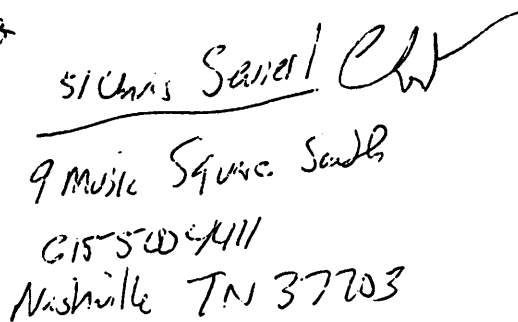 s/Chris Sevier/
9 Music Square South
615 500 4411
Nashville TN 37203